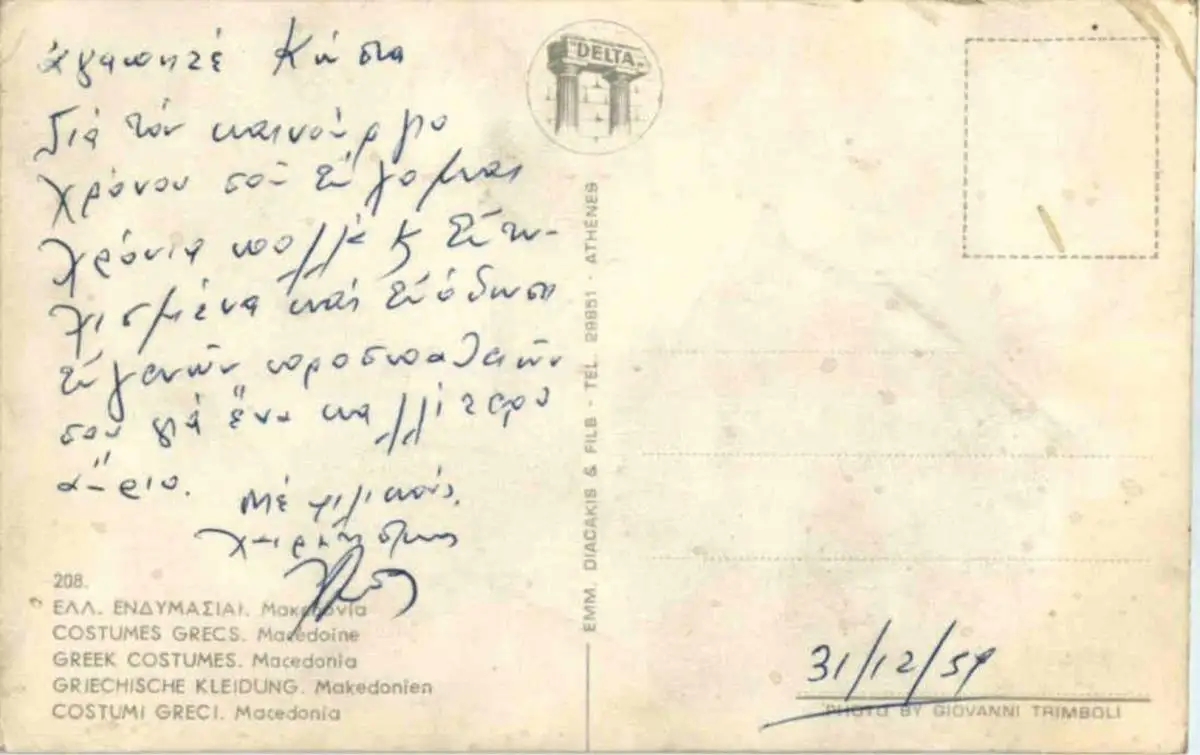 ἀγαπητέ Κώστα
Γιά τόν καινούργιο
χρόνου σοῦ εὔχομαι
χρόνια πολλά κ εὐτυ-
χισμένα καί εὐόδωση
εὐγενῶν προσπαθειῶν
σου γιά ἕνα καλλίτερο
αὔριο.
Μέ φιλικούς
χαιρετισμούς
DELTA
EMM. DIACAKIS & FILS - TEL. 29851 - ATHÈNES
208.
ΕΛΛ. ΕΝΔΥΜΑΣΙΑΙ. Μακεδονία
COSTUMES GRECS. Macedoine
GREEK COSTUMES. Macedonia
GRIECHISCHE KLEIDUNG. Makedonien
COSTUMI GRECI. Macedonia
31/12/59
PHOTO BY GIOVANNI TRIMBOLI